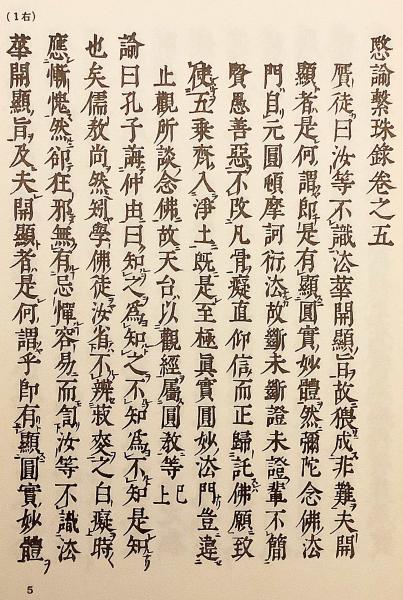 (1右)
愍諭繫珠錄卷之五
贋徒曰汝等不識法華開顯旨故猥成非難夫開
顯者是何謂即是有顯圓實妙體然彌陀念佛法
門自元圓頓摩訶衍法故斷未斷證未證輩不簡
賢愚善惡不改凡骨癡直仰信而正歸託佛願致
使五乘齊入淨土既是至極眞實圓妙法門豈違
止觀所談念佛故天台以觀經屬圓教等已上
諭曰孔子誨仲由曰知之爲知之不知爲不知是知
也矣儒教尚然矧學佛徒汝省不辨菽麥之白癡時
應慚愧然卻狂邪無有忌憚容易而訇汝等不識法
華開顯旨及夫開顯者是何謂乎即有顯圓實妙體
5